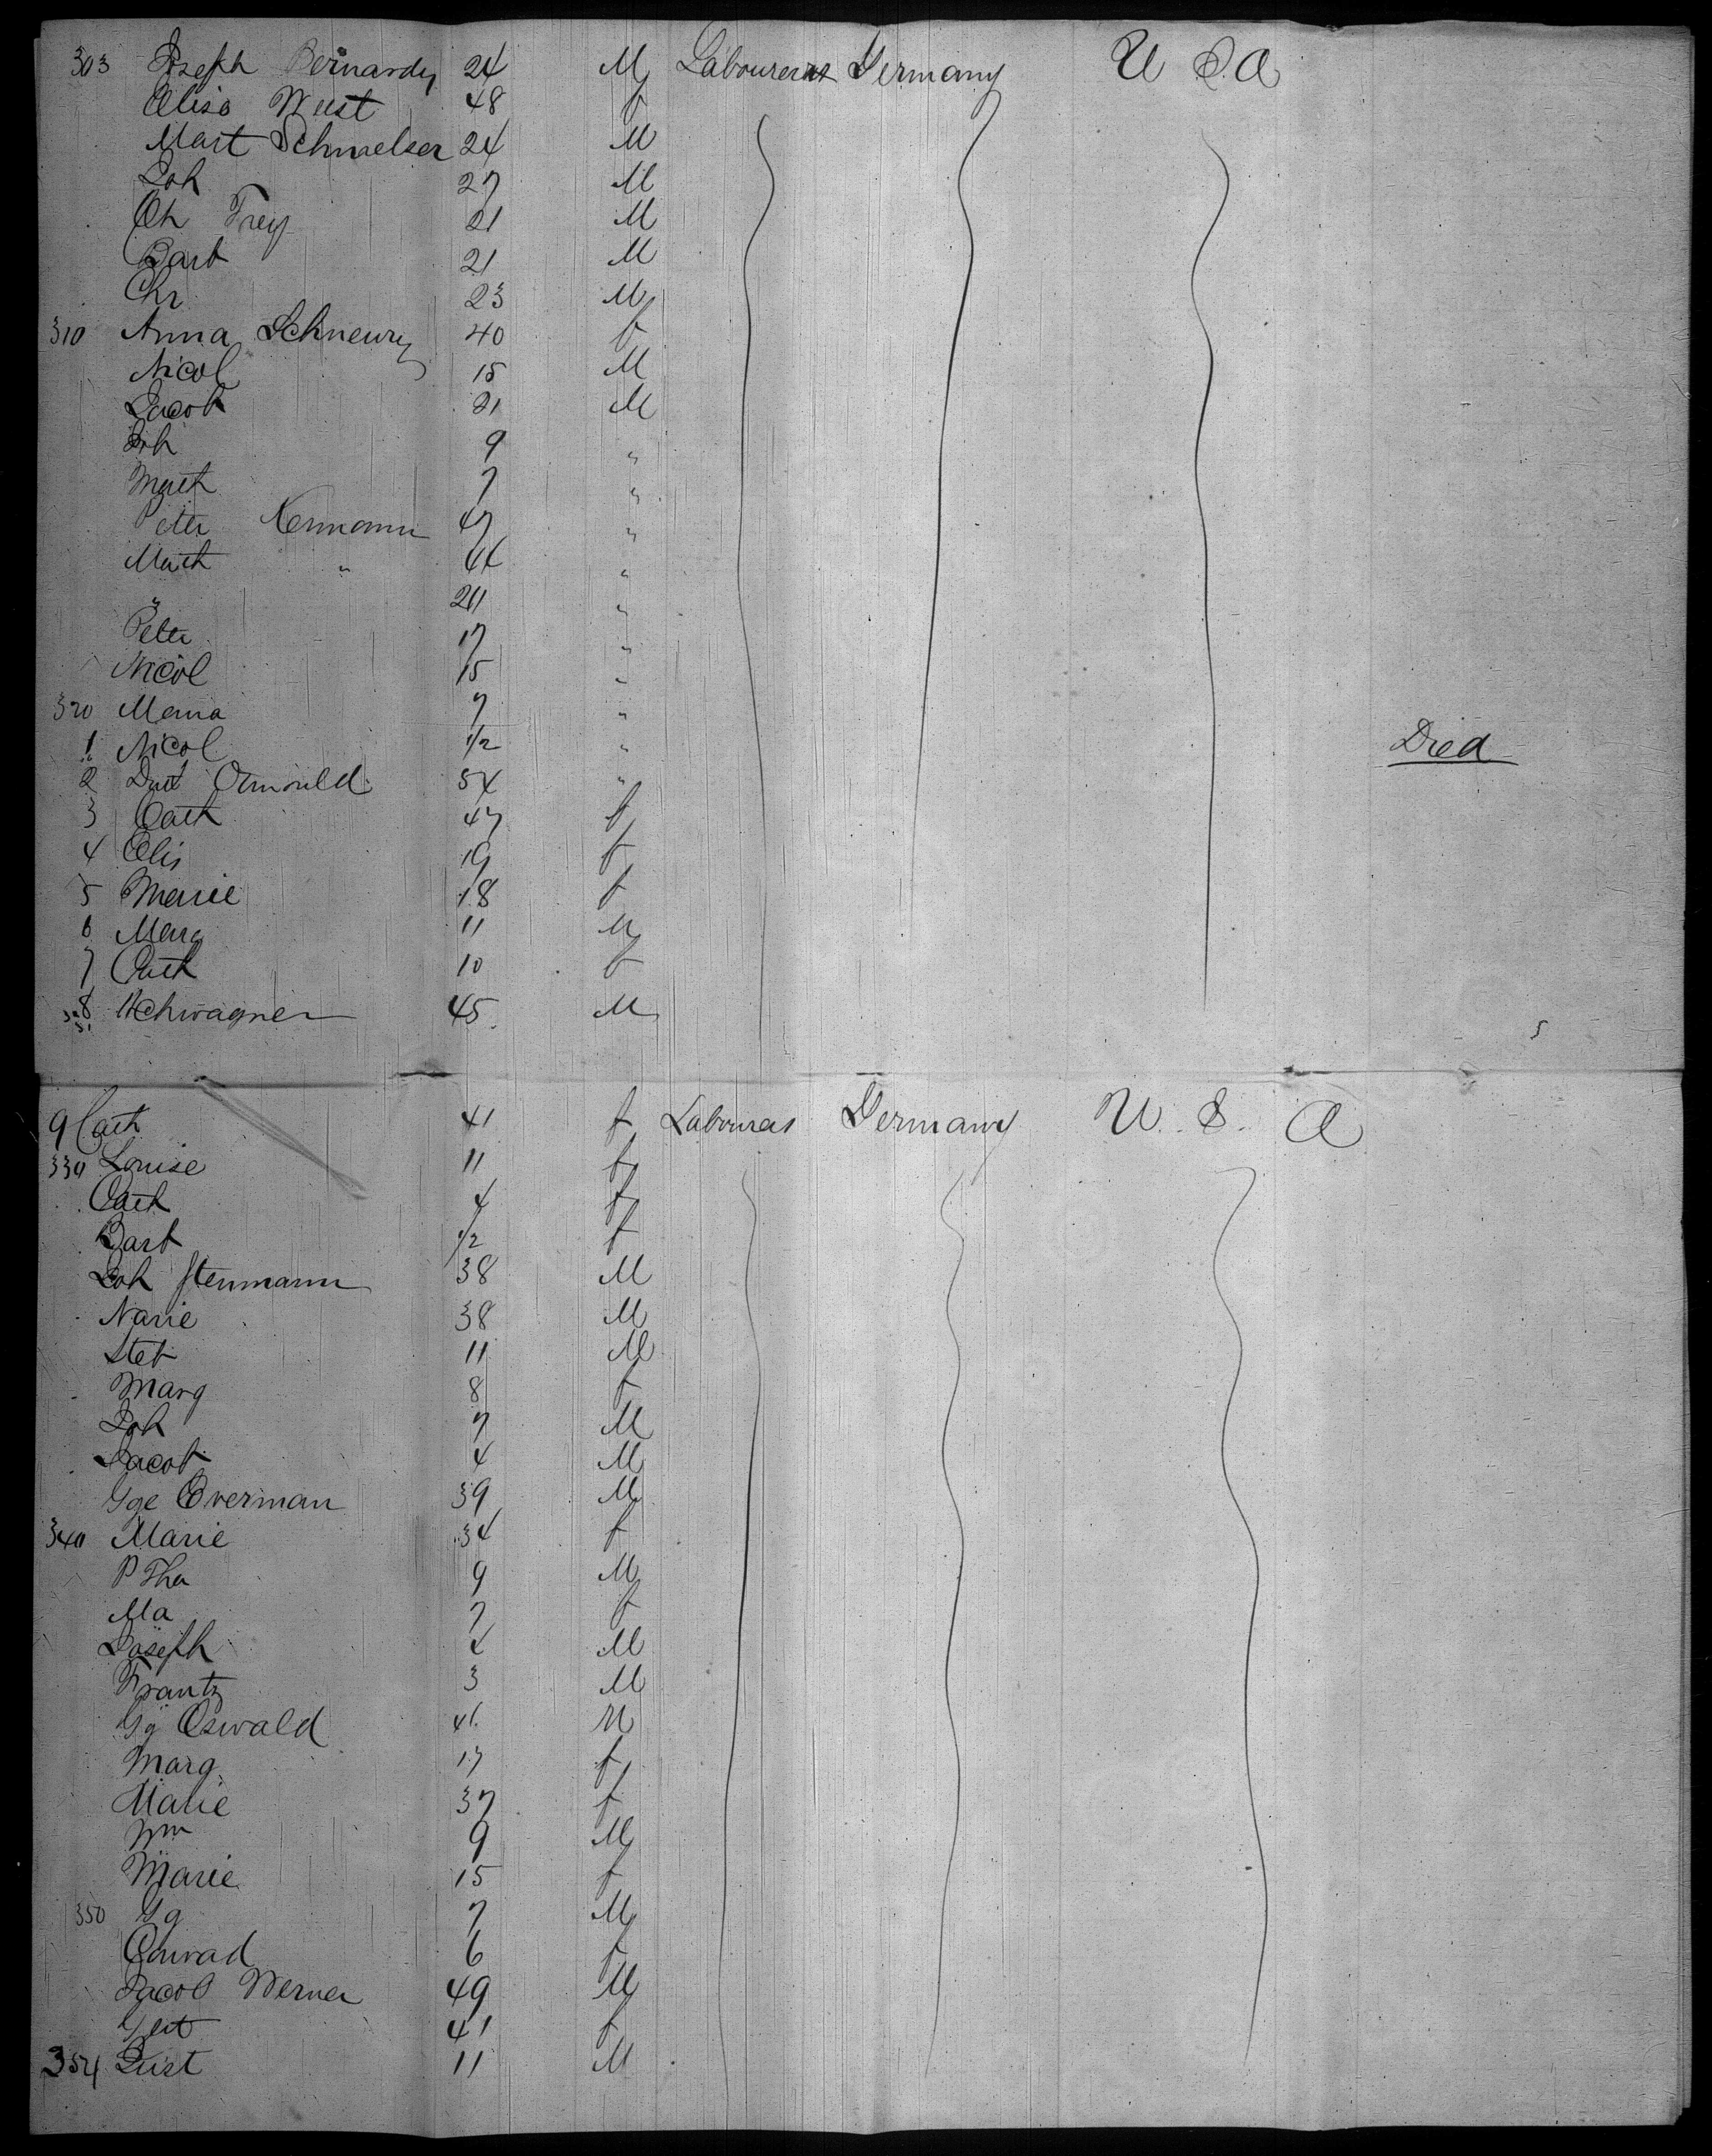 303 Joseph Bernardy 24 M Labourers Germany U S. A
Elisa Wust 48 f
Mart Schmelser 24 M
Joh 27 M
Ch Frey 21 M
Barb 21 M
Chr 23 M
310 Anna 40 f
Nicol 15 M
Jacob 21 M
Joh 9 "
Math 7 "
Peter Hermann 47 "
Math " 44 "
" "
Peter 17 "
Nicol 15 "
320 Maria 7 "
1 Nicol 1/2 " Died
2 54 "
3 Cath 47 f
4 Elis 19 f
5 Marie 18 f
6 Marg 11 M
7 Cath 10 f
8 45 M
5
9 Cath 41 f Labourers Germany U. S. A
330 Louise 11 f
Cath 4 f
Barb 1/2 f
Joh 38 M
Marie 38 M
Stef 11 M
Marg 8 f
Joh 7 M
Jacob 4 M
Gge Everman 39 M
340 Marie 34 f
P 9 M
Ma 7 f
Joseph M
Frantz 3 M
Gg Oswald 41 M
Marg 17 f
Marie 37 f
Wm 9 M
Marie 15 f
350 Gg 7 M
Conrad 6 f
Jacob Werner 49 M
41 f
354 11 M